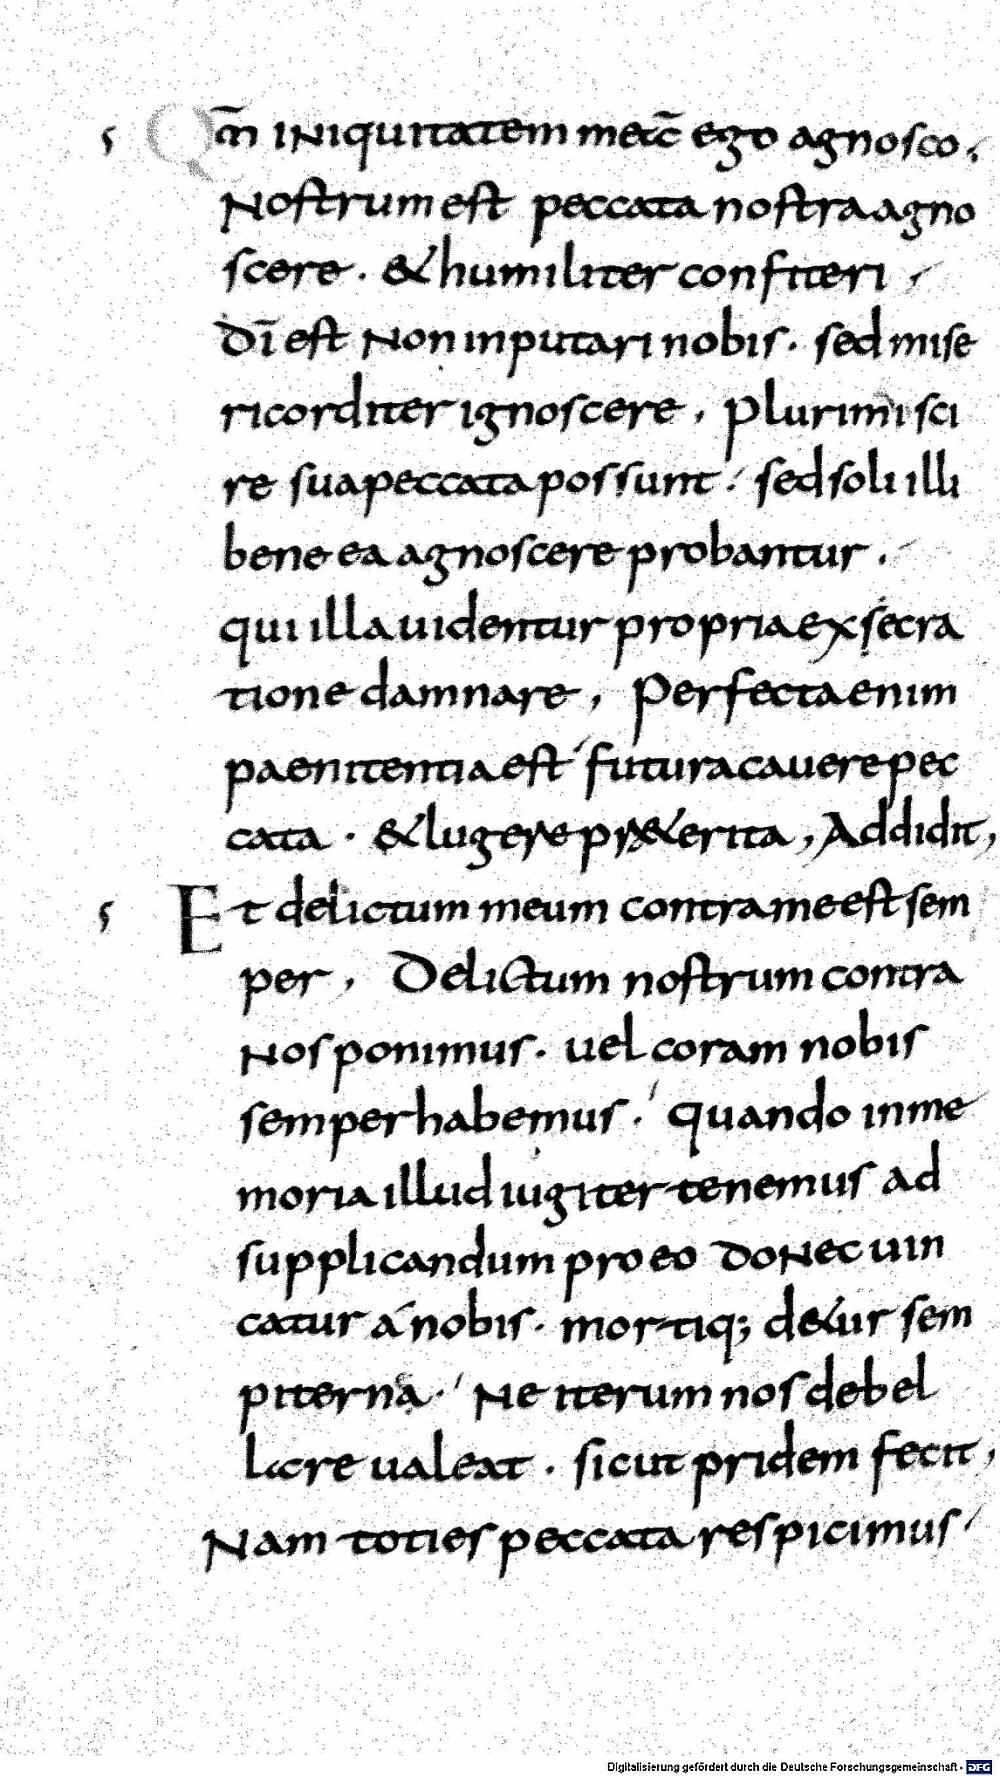 Qm̄ iniquitatem meā ego agnosco.
Nostrum est peccata nostra agno
scere. & humiliter confiteri
Dī est non inputari nobis. sed mise
ricorditer ignoscere, Plurimi sci
re sua peccata possunt. sed soli illi
bene ea agnoscere probantur.
qui illa uidentur propria exsecra
tione damnare, Perfecta enim
paenitentia est futura cauere pec
cata. & lugere præ&erita, Addidit,
Et delictum meum contra me est sem
per, Delictum nostrum contra
nos ponimus. uel coram nobis
semper habemus. quando in me
moria illud iugiter tenemus ad
supplicandum pro eo donec uin
catur á nobis. mortiq; de&ur sem
piterna. Ne iterum nos debel
lare ualeat. sicut pridem fecit,
Nam toties peccata respicimus
Digitalisierung gefördert durch die Deutsche Forschungsgemeinschaft - DFG